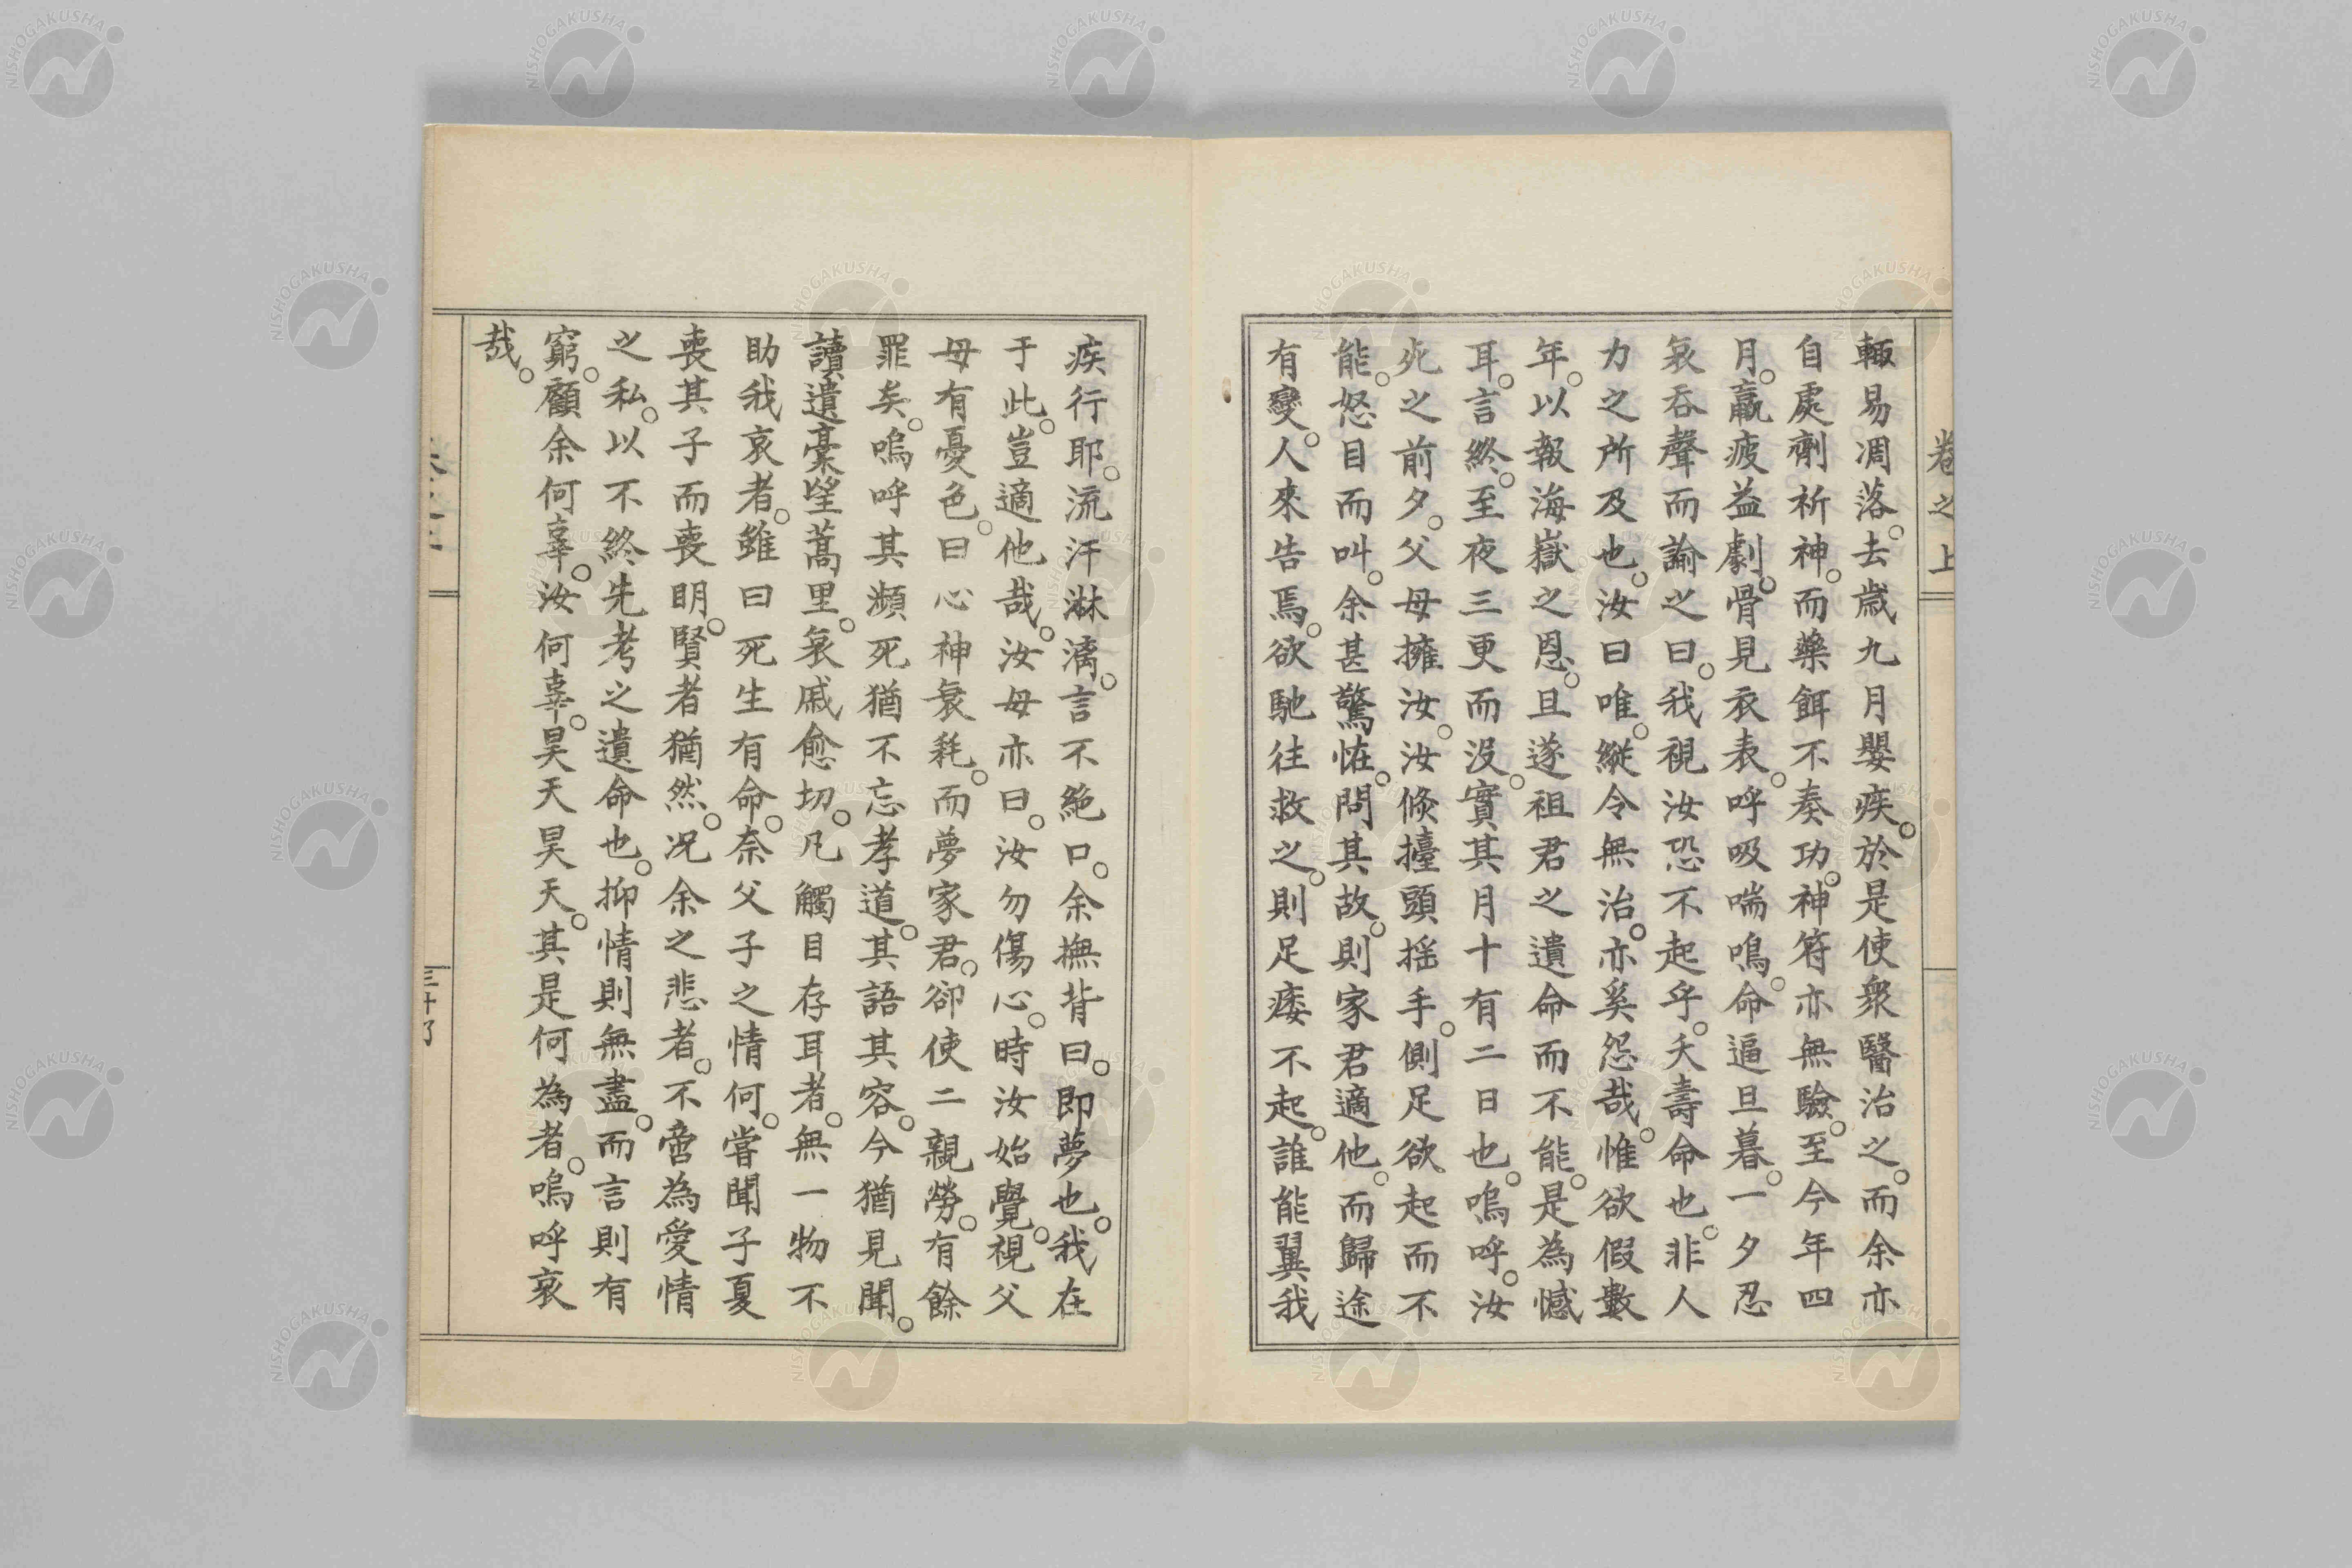 卷之上
輙易凋落。去歲九月嬰疾。於是使衆醫治之。而余亦
自處劑祈神。而藥餌不奏功。神符亦無驗。至今年四
月。羸疲益劇。骨見衣表。呼吸喘鳴。命逼旦暮。一夕忍
哀吞聲而諭之曰。我視汝恐不起乎。夭壽命也。非人
力之所及也。汝曰唯。縱令無治。亦奚怨哉。惟欲假數
年。以報海嶽之恩。且遂祖君之遺命而不能。是為憾
耳。言終。至夜三更而沒。實其月十有二日也。嗚呼。汝
死之前夕。父母擁汝。汝倐擡頭揺手。側足欲起而不
能。怒目而叫。余甚驚恠。問其故。則家君適他。而歸途
有變。人來告焉。欲馳往救之。則足痿不起。誰能翼我
疾行耶。流汗淋漓。言不絶口。余撫背曰。即夢也。我在
于此。豈適他哉。汝母亦曰。汝勿傷心。時汝始覺。視父
母有憂色。曰心神衰耗。而夢家君。卻使二親勞。有餘
罪矣。嗚呼其瀕死猶不忘孝道。其語其容。今猶見聞。
讀遺稾望蒿里。哀戚愈切。凡觸目存耳者。無一物不
助我哀者。雖曰死生有命。奈父子之情何。嘗聞子夏
喪其子而喪明。賢者猶然。况余之悲者。不啻為愛情
之私。以不終先考之遺命也。抑情則無盡。而言則有
窮。顧余何辜。汝何辜。昊天昊天。其是何為者。嗚呼哀
哉。